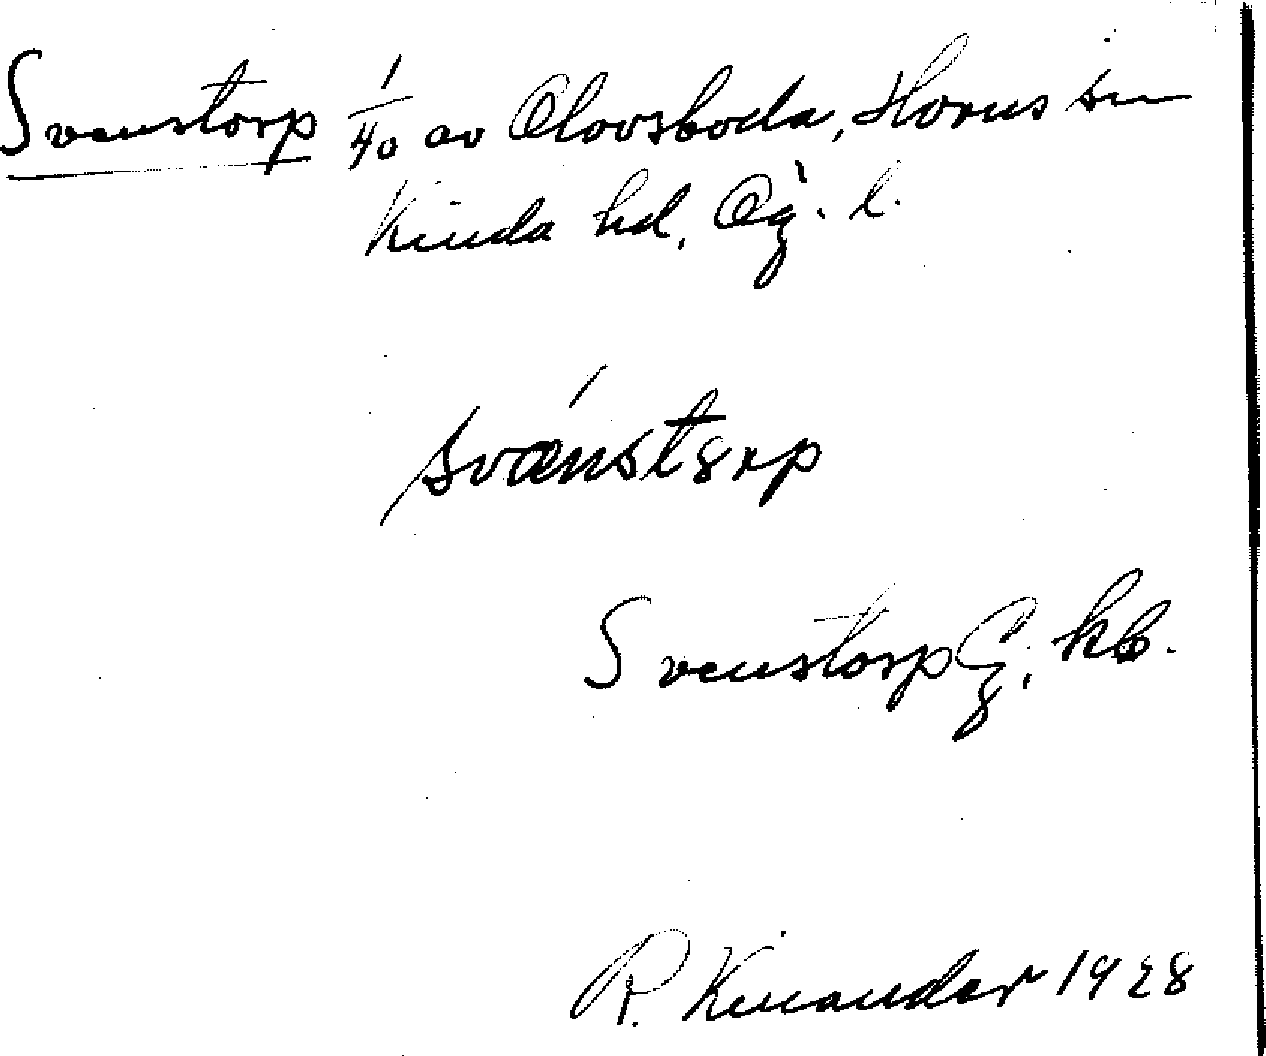 Svenstorp 1/40 av Olovsboda, Horns sn
Kinda hd, Ög. l.
svænstorp
Svenstorp G, kb.
R. Kinander 1928